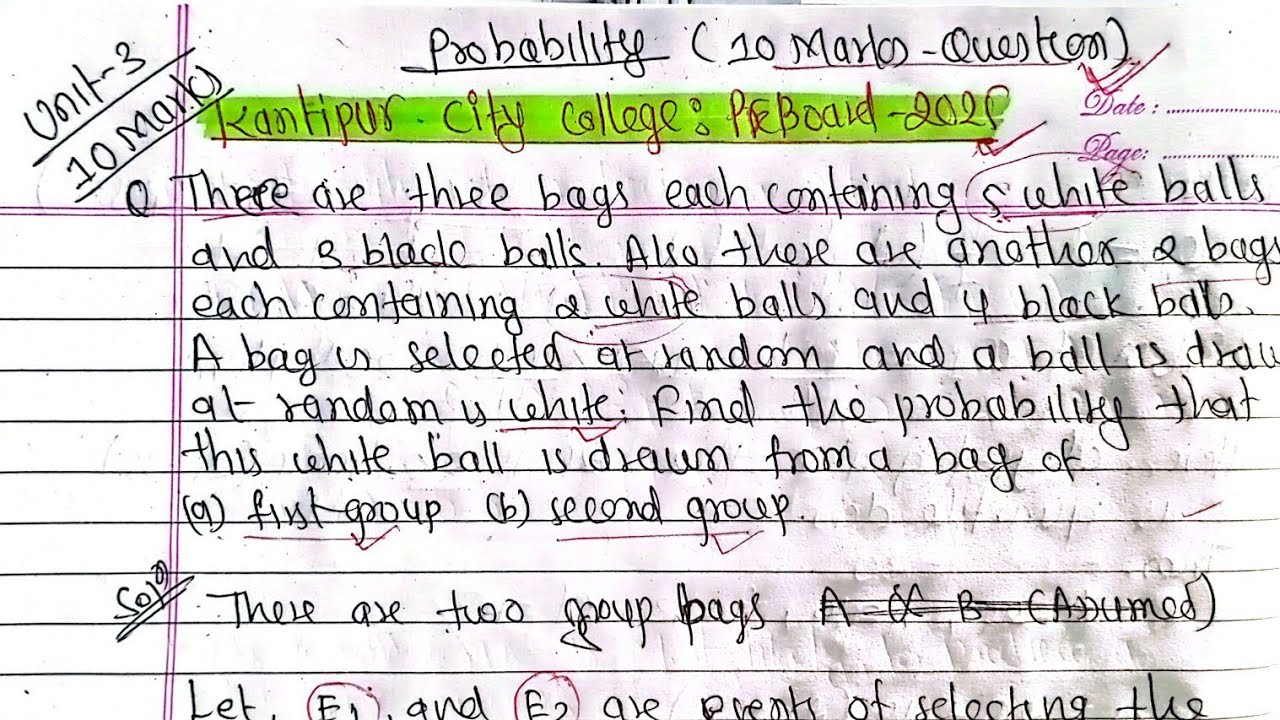 Probability (10 Marks-Question)
Unit-3
10 Marks
Kantipur City College: PreBoard-202
Date :
Page:
Q There are three bags each containing 5 white balls
and 3 black balls. Also there are another 2 bags
each containing 2 white balls and 4 black balls.
A bag is selected at random and a ball is draw
at random is white. Find the probability that
this white ball is drawn from a bag of
(a) first group (b) second group.
Soln
There are two group bags A & B (Assumed)
Let, E1, and E2 are events of selecting the